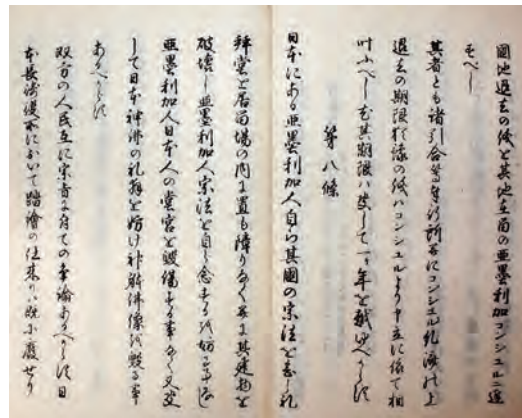 国地退去の儀を其地在留の亜墨利加コンシユルに達
すべし
其者とも諸引合等奉行所并にコンシユル糺済の上
退去の期限猶豫の儀ハコンシユルより申立に依て相
叶ふへし尤其期限ハ決して一ヶ年を越ゆへからす
第八條
日本にある亜墨利加人自ら其國の宗法を念し礼
拝堂を居留場の内に置も障りなく并に其建物を
破壊し亜墨利加人宗法を自ら念するを妨る事なし
亜墨利加人日本人の堂宮を毀傷する事なく又決
して日本神佛の礼拝を妨け神躰佛像を毀る事
あるへからす
双方の人民互に宗旨に付ての争論あるへからす日
本長崎役所において踏繪の仕来りハ既に廢せり